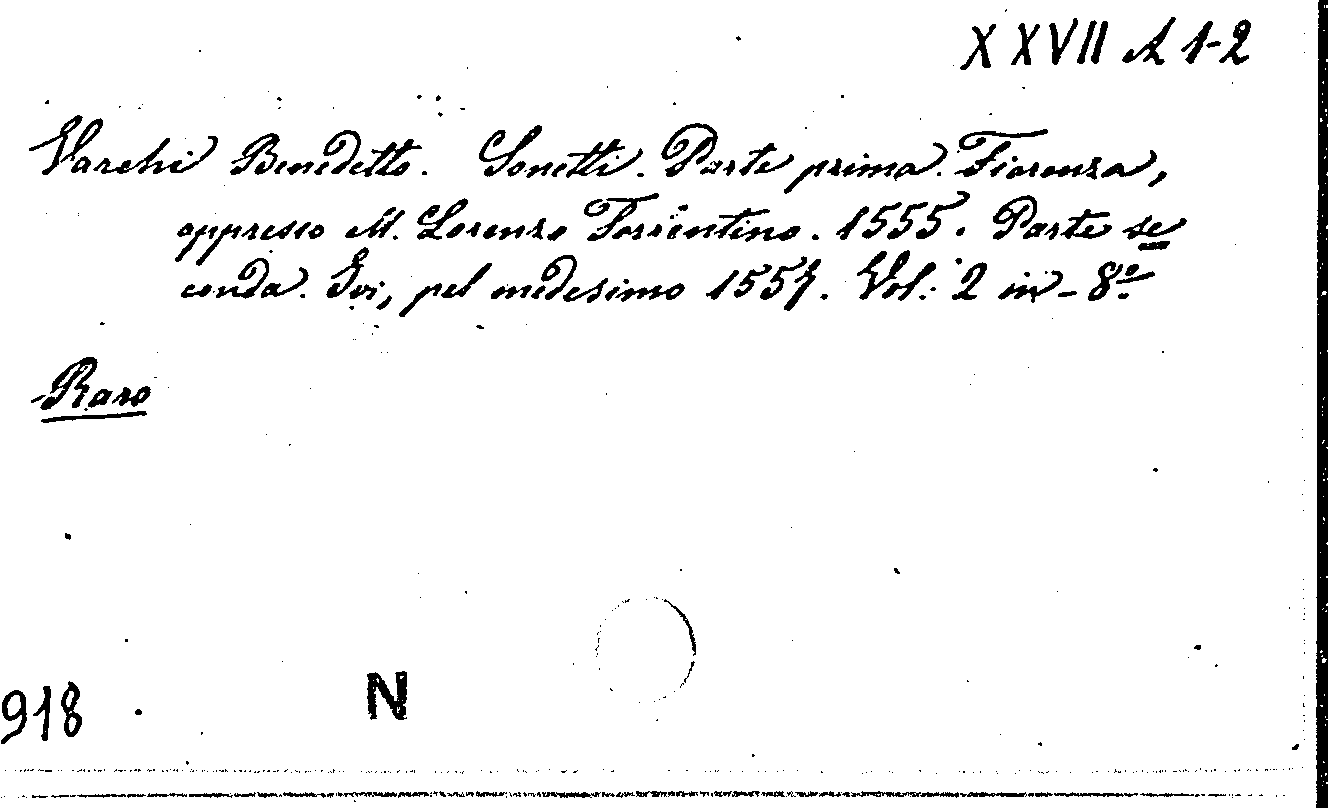 XXVII A 1-2
Varchi Benedetto. Sonetti. Parte prima. Fiorenza,
appresso M. Lorenzo Torrentino. 1555. Parte se
conda. Ivi, pel medesimo 1557. Vol: 2 in-8º
Raro
918
N